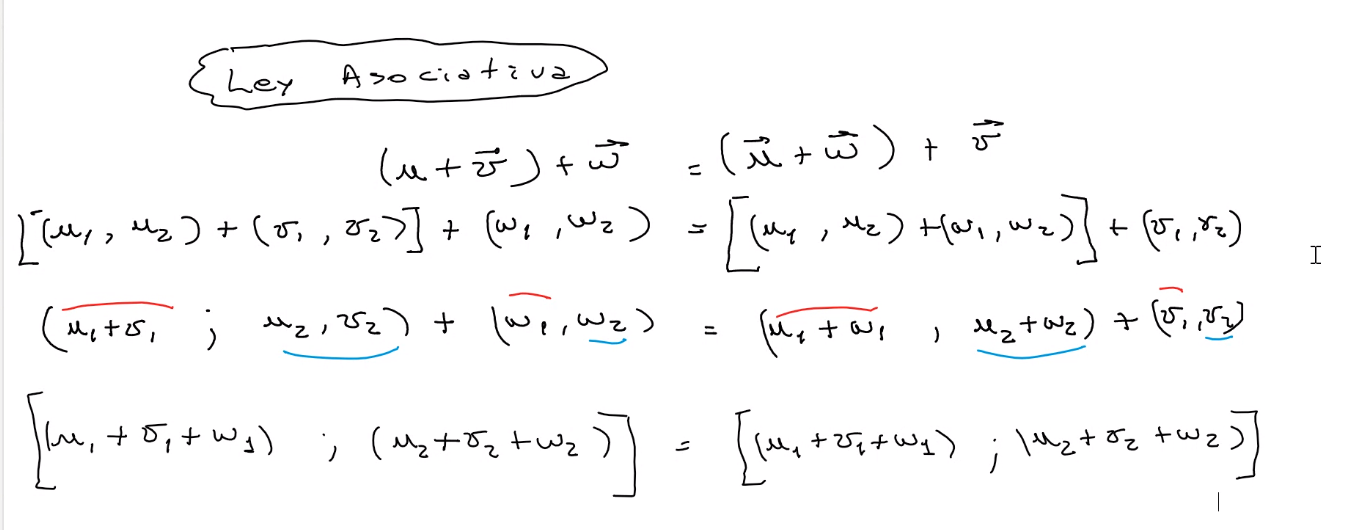 Ley Asociativa
(u + v⃗) + w⃗ = (u⃗ + w⃗) + v⃗
[(u₁, u₂) + (v₁, v₂)] + (w₁, w₂) = [(u₁, u₂) + (w₁, w₂)] + (v₁, v₂)
(u₁+v₁ ; u₂, v₂) + (w₁, w₂) = (u₁ + w₁ , u₂+w₂) + (v₁, v₂)
[(u₁ + v₁ + w₁) ; (u₂+v₂+w₂)] = [(u₁+v₁+w₁) ; (u₂+v₂+w₂)]